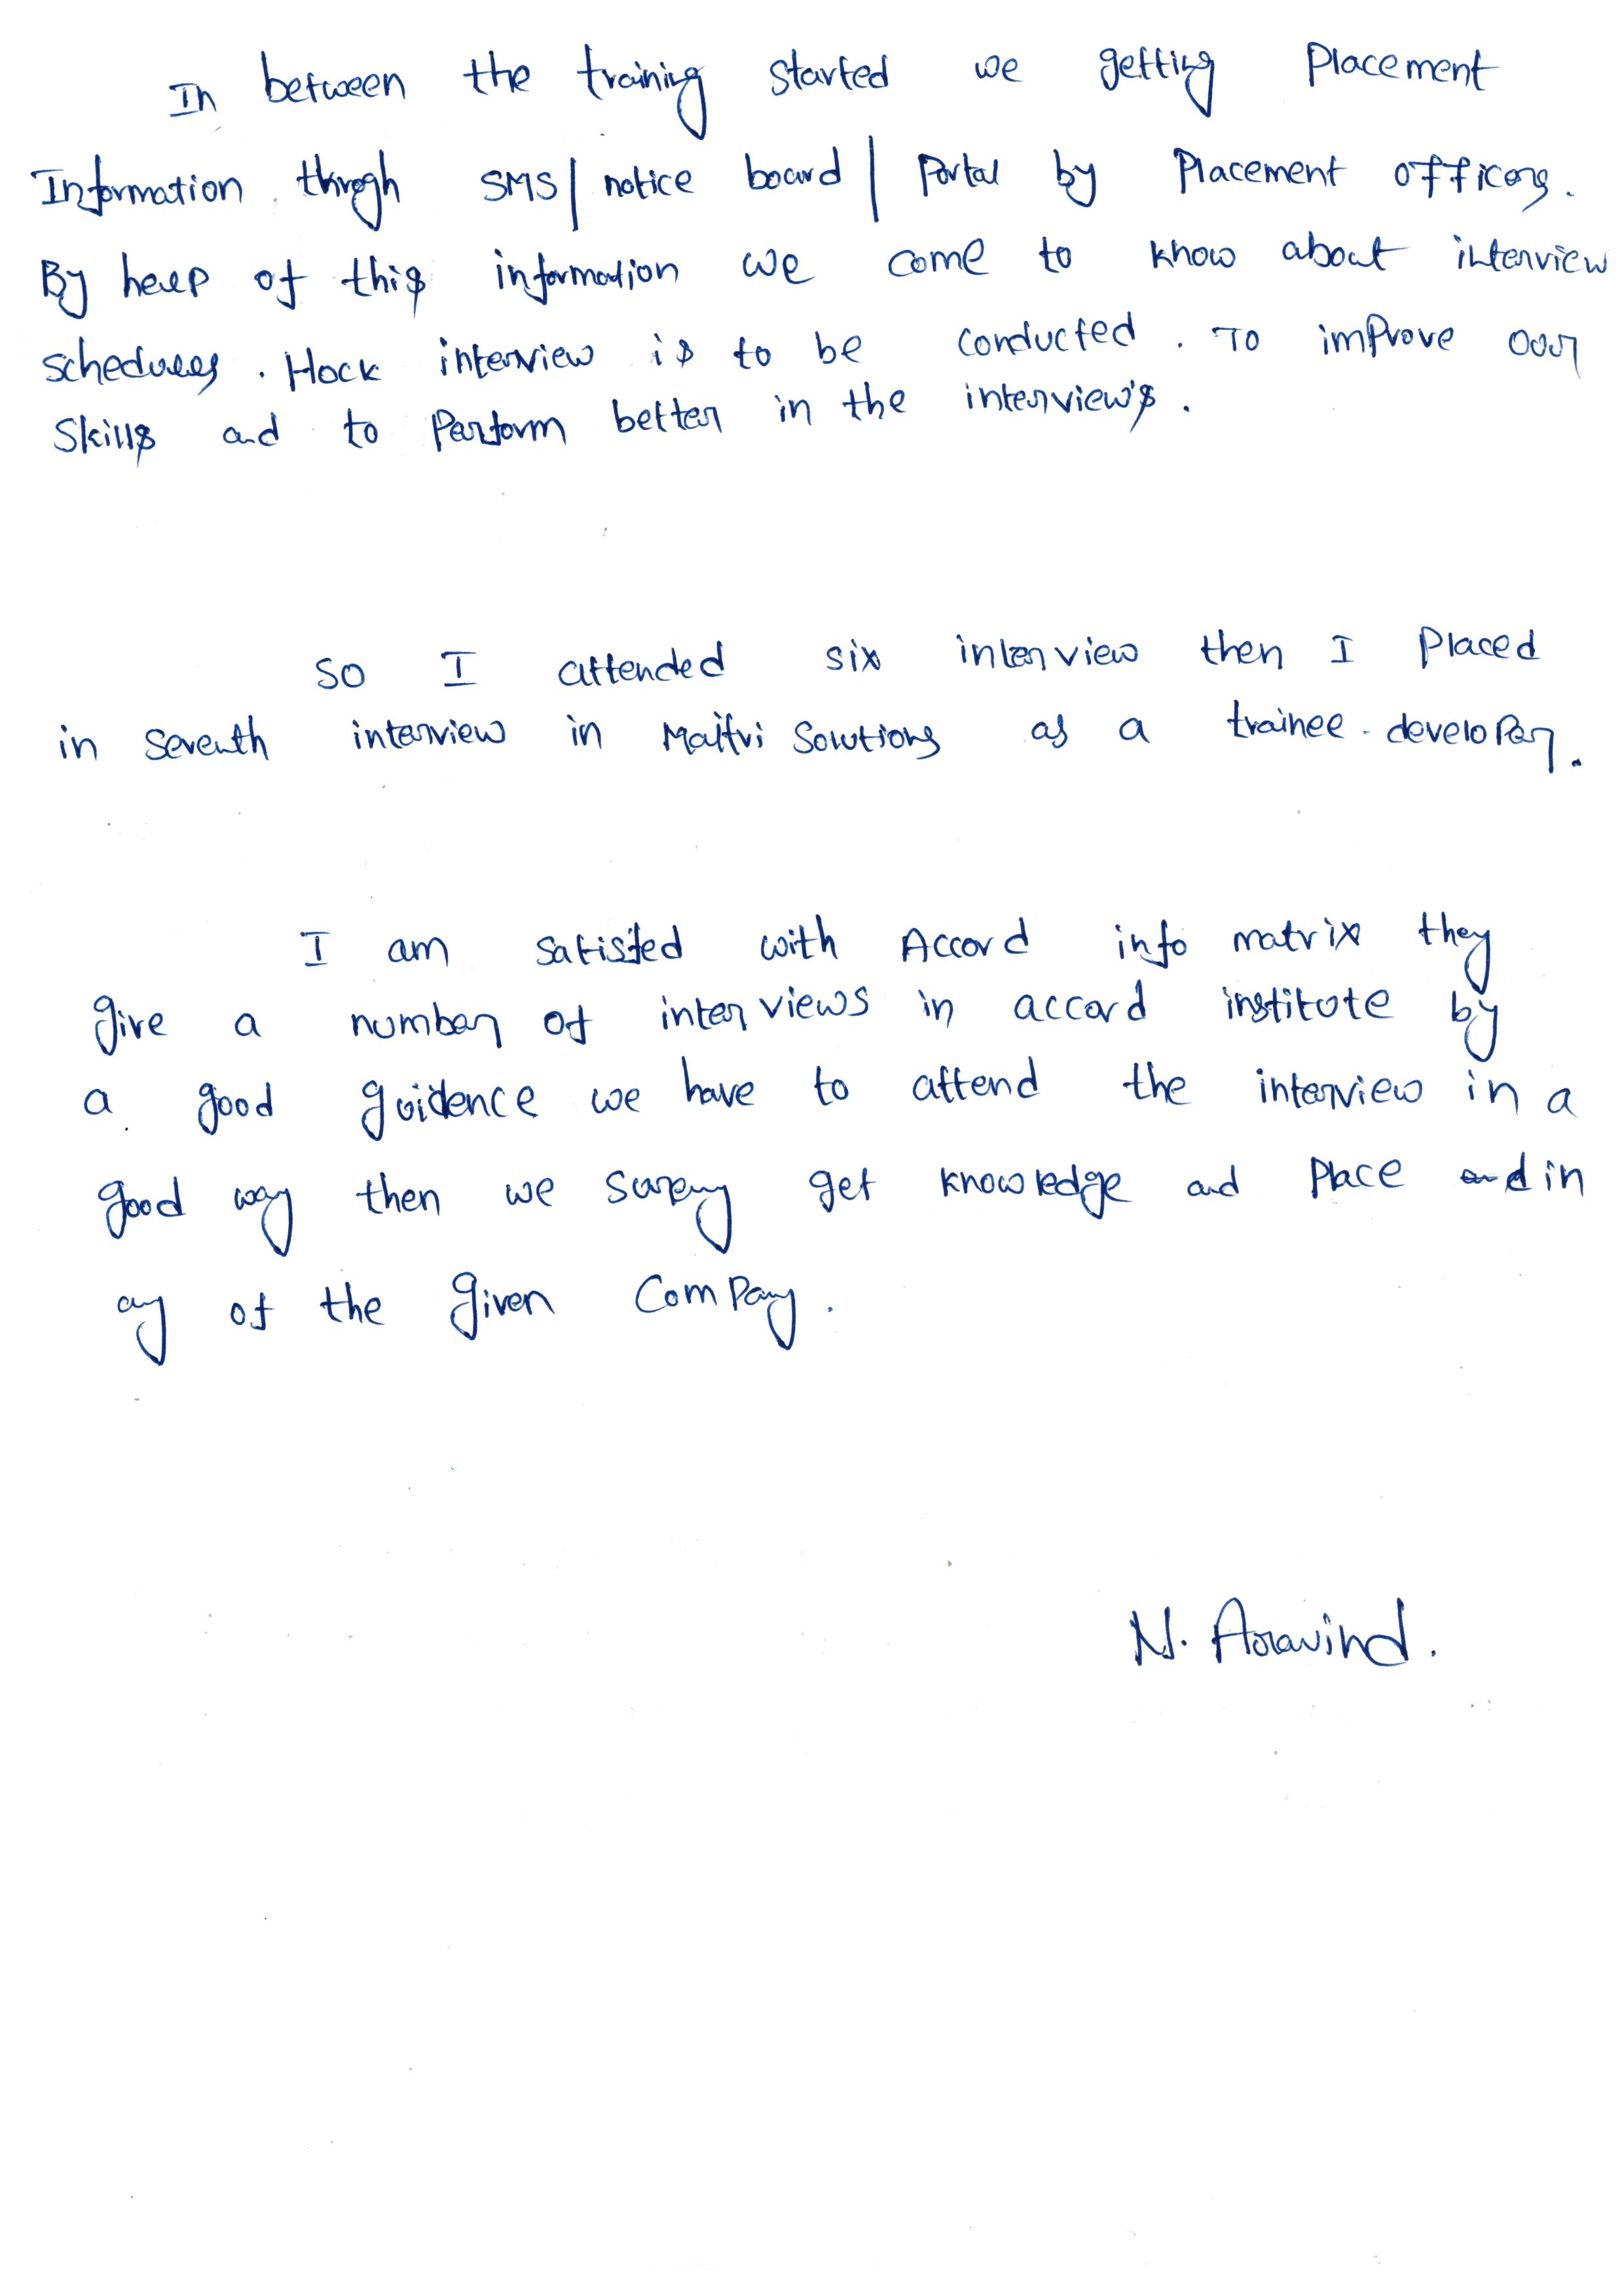 In between the training started we getting Placement
Information throgh SMS/notice board/Portal by Placement officers.
By help of this information we come to know about interview
schedules. Mock interview is to be conducted. To improve our
Skills and to Perform better in the interview's.
So I attended six interview then I Placed
in Seventh interview in Maitri Solutions as a trainee developer.
I am satisfied with Accord info matrix they
give a number of interviews in accord institute by
a good guidence we have to attend the interview in a
good way then we get knowledge and Place in
any of the given Company.
N. Aravind.